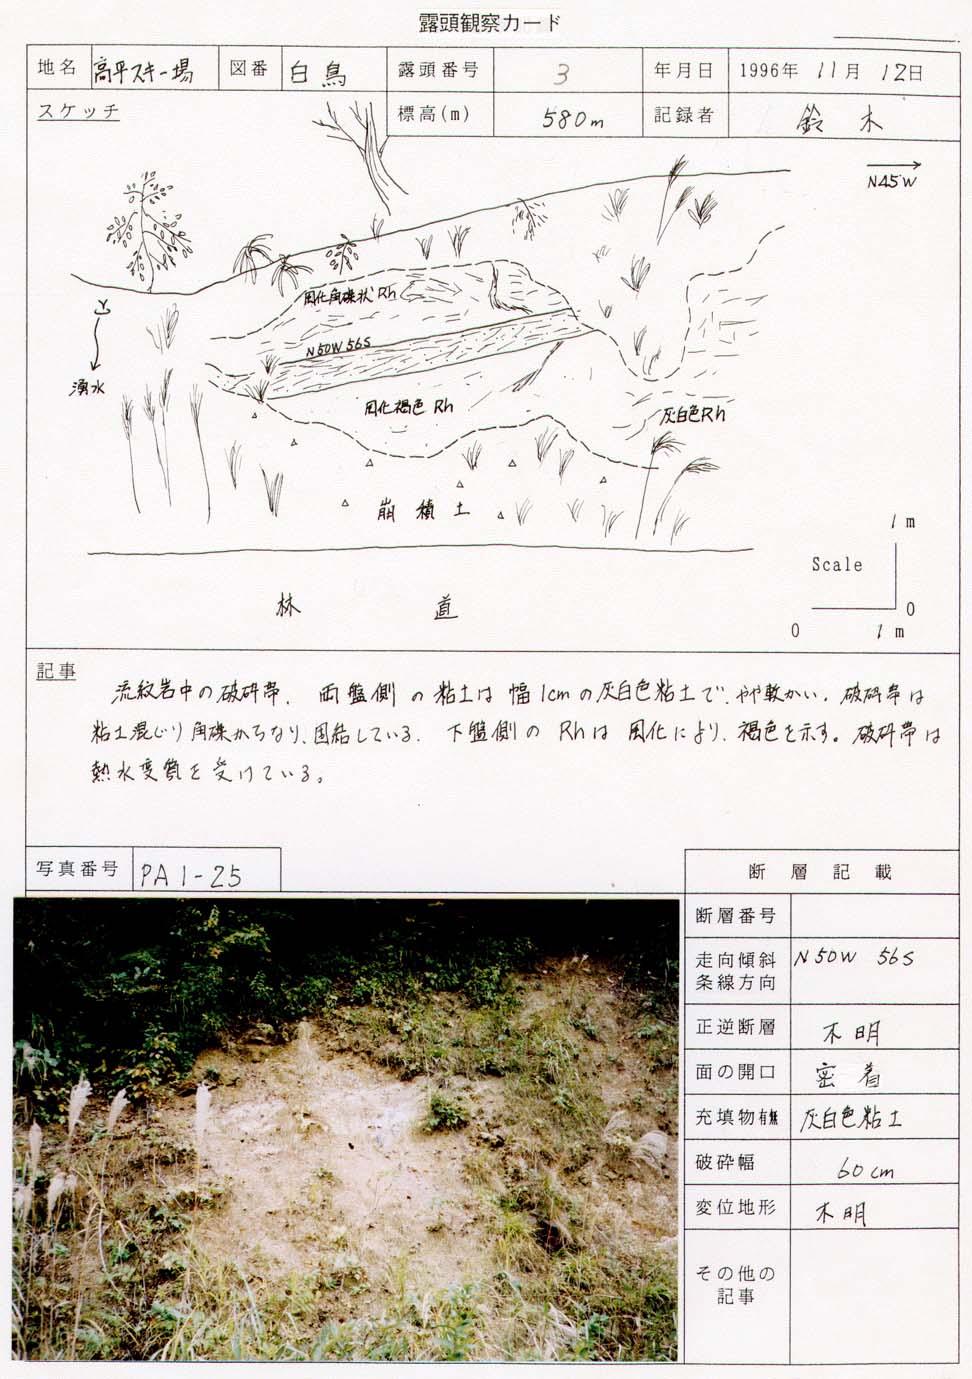 露頭観察カード
地名 高平スキー場 図番 白鳥 露頭番号 3 年月日 1996年 11月 12日
スケッチ 標高(m) 580m 記録者 鈴木
N45W
風化角礫状Rh
N50W 56S
湧水
風化褐色 Rh
灰白色Rh
崩積土
1 m
Scale
0
0 1 m
林道
記事
流紋岩中の破砕帯. 両盤側の粘土は幅1cmの灰白色粘土で、やや軟かい. 破砕帯は
粘土混じり角礫からなり、固結している. 下盤側の Rhは 風化により、褐色を示す。破砕帯は
熱水変質を受けている。
写真番号 PA1-25
断層記載
断層番号
走向傾斜 N50W 56S
条線方向
正逆断層 不明
面の開口 密着
充填物有無 灰白色粘土
破砕幅 60cm
変位地形 不明
その他の
記事